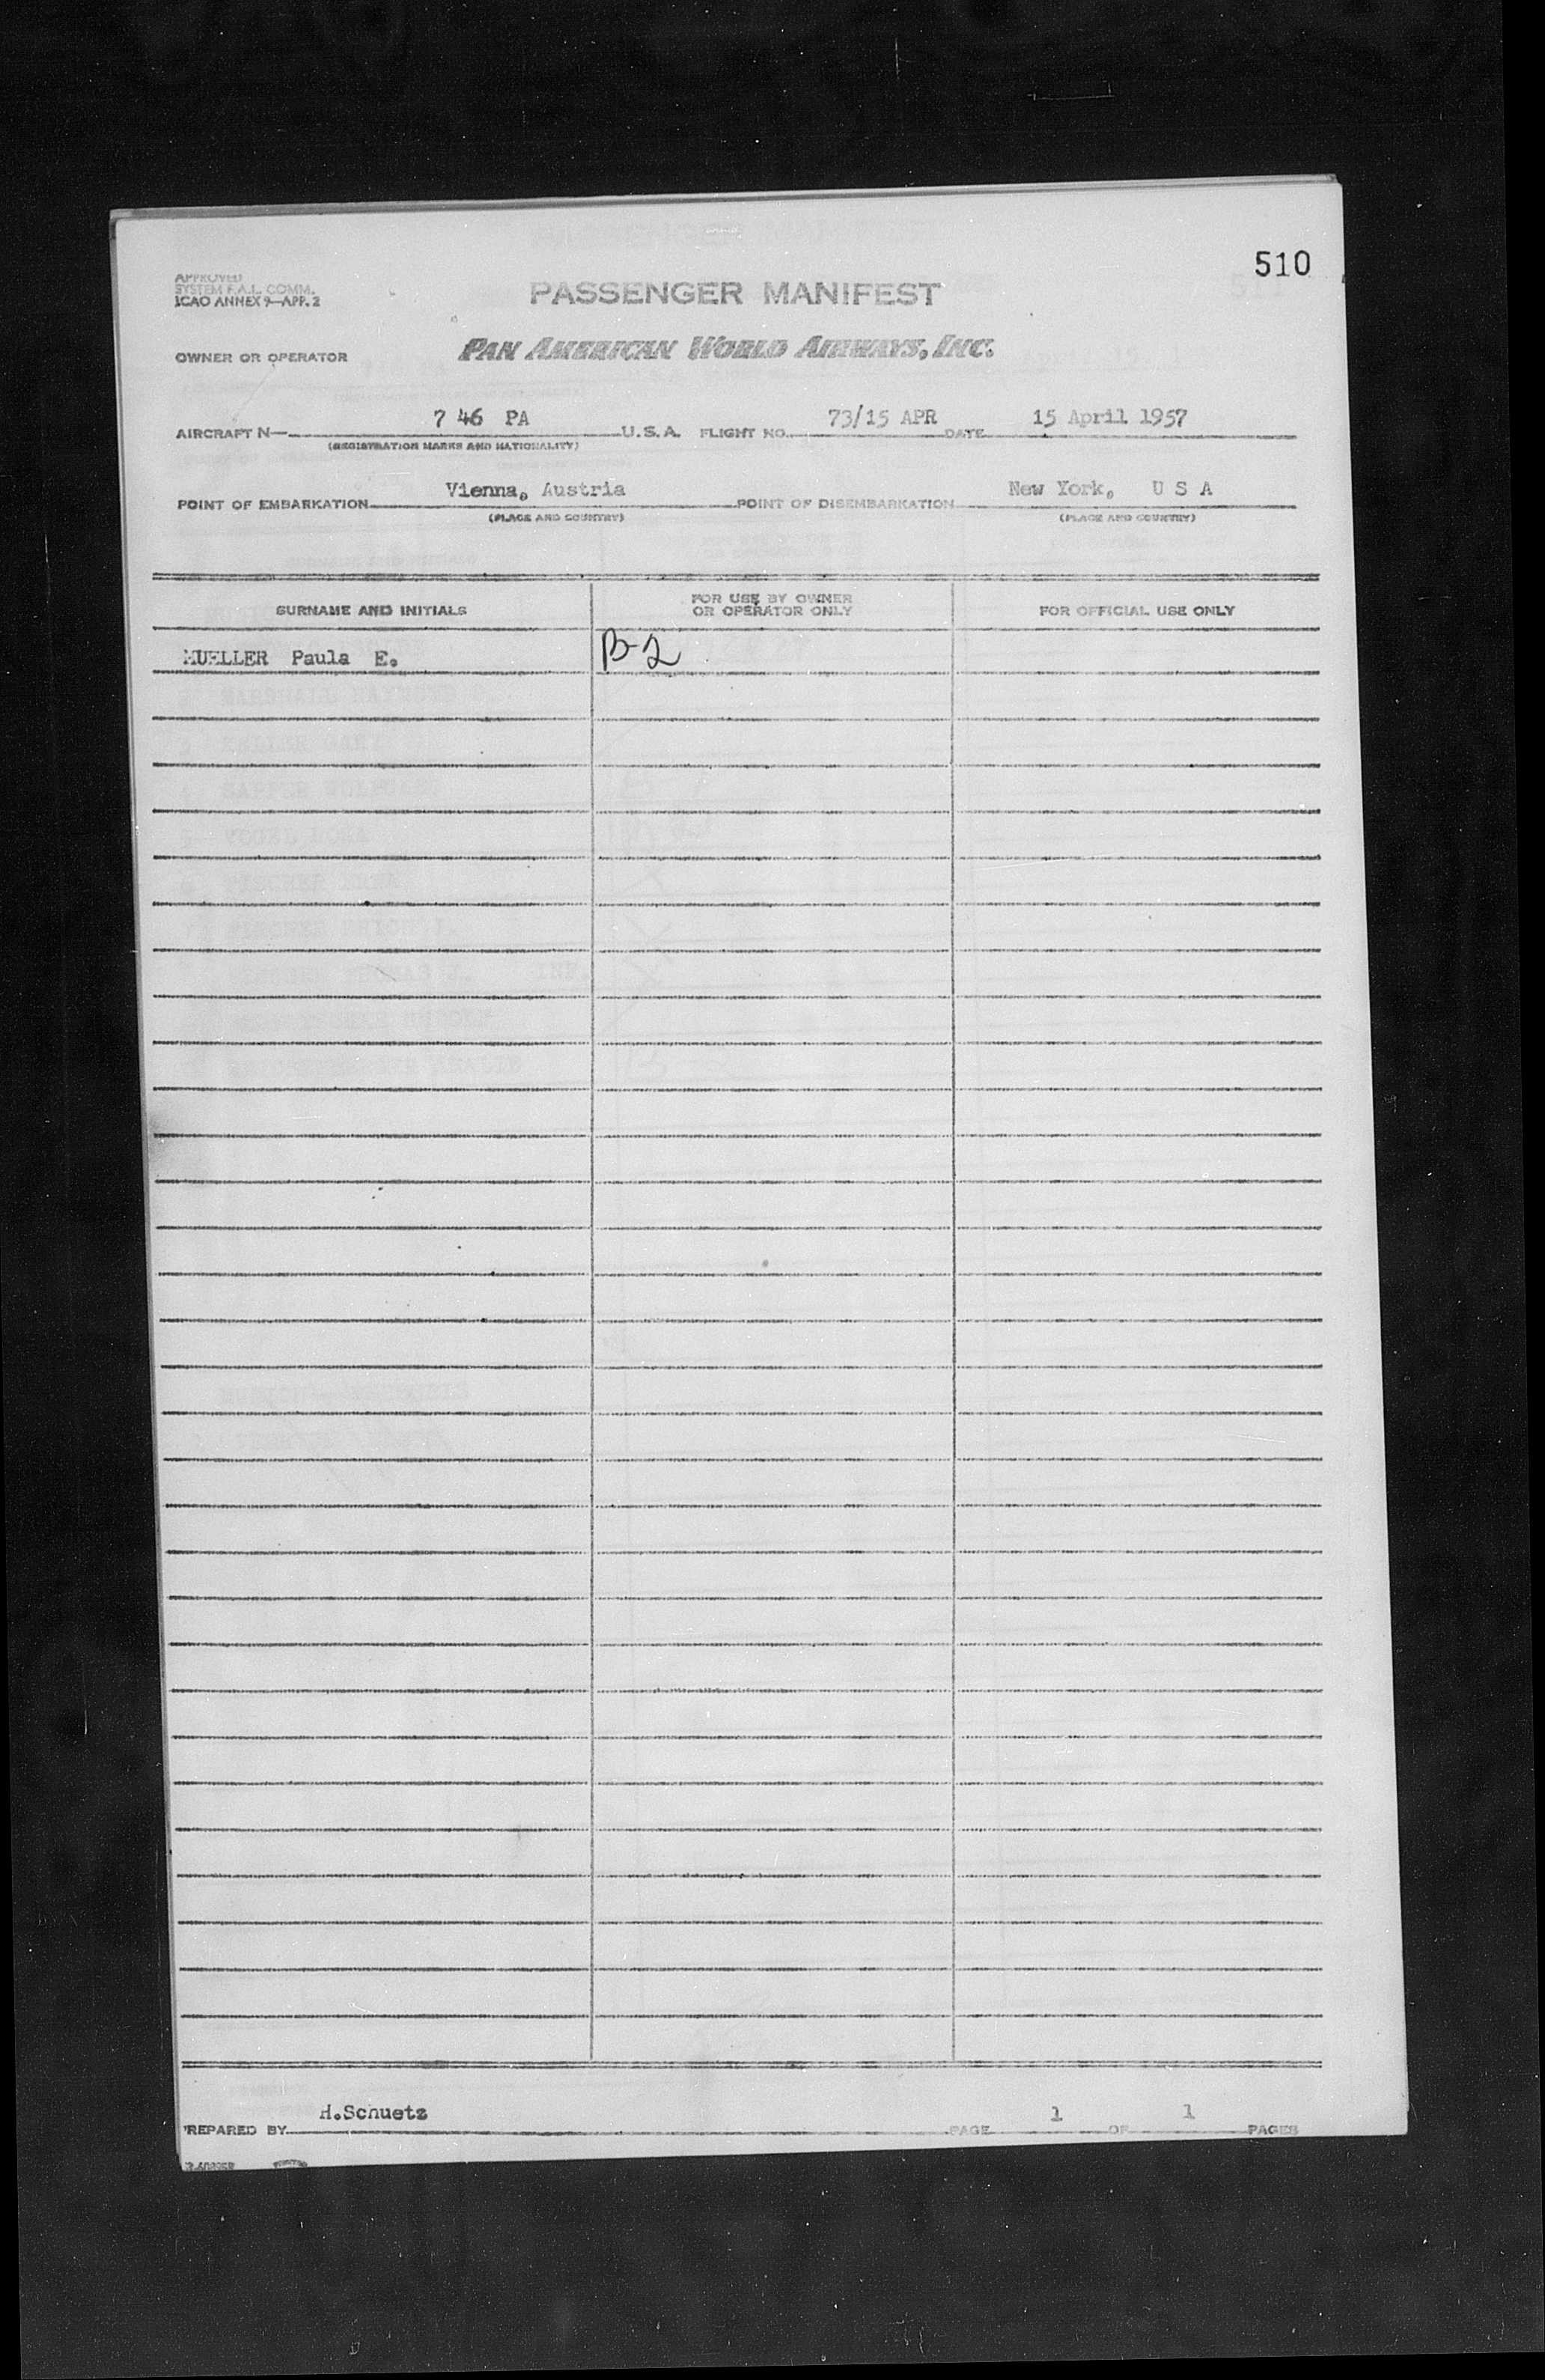 510
APPROVED
SYSTEM F.A.L. COMM.
ICAO ANNEX 9—APP. 2
PASSENGER MANIFEST
OWNER OR OPERATOR PAN AMERICAN WORLD AIRWAYS, INC.
AIRCRAFT N— 7 46 PA U.S.A. FLIGHT NO. 73/15 APR DATE 15 April 1957
(REGISTRATION MARKS AND NATIONALITY)
POINT OF EMBARKATION Vienna, Austria POINT OF DISEMBARKATION New York, U S A
(PLACE AND COUNTRY) (PLACE AND COUNTRY)
SURNAME AND INITIALS FOR USE BY OWNER OR OPERATOR ONLY FOR OFFICIAL USE ONLY
MUELLER Paula E. B-2
PREPARED BY H.Schuetz PAGE 1 OF 1 PAGES